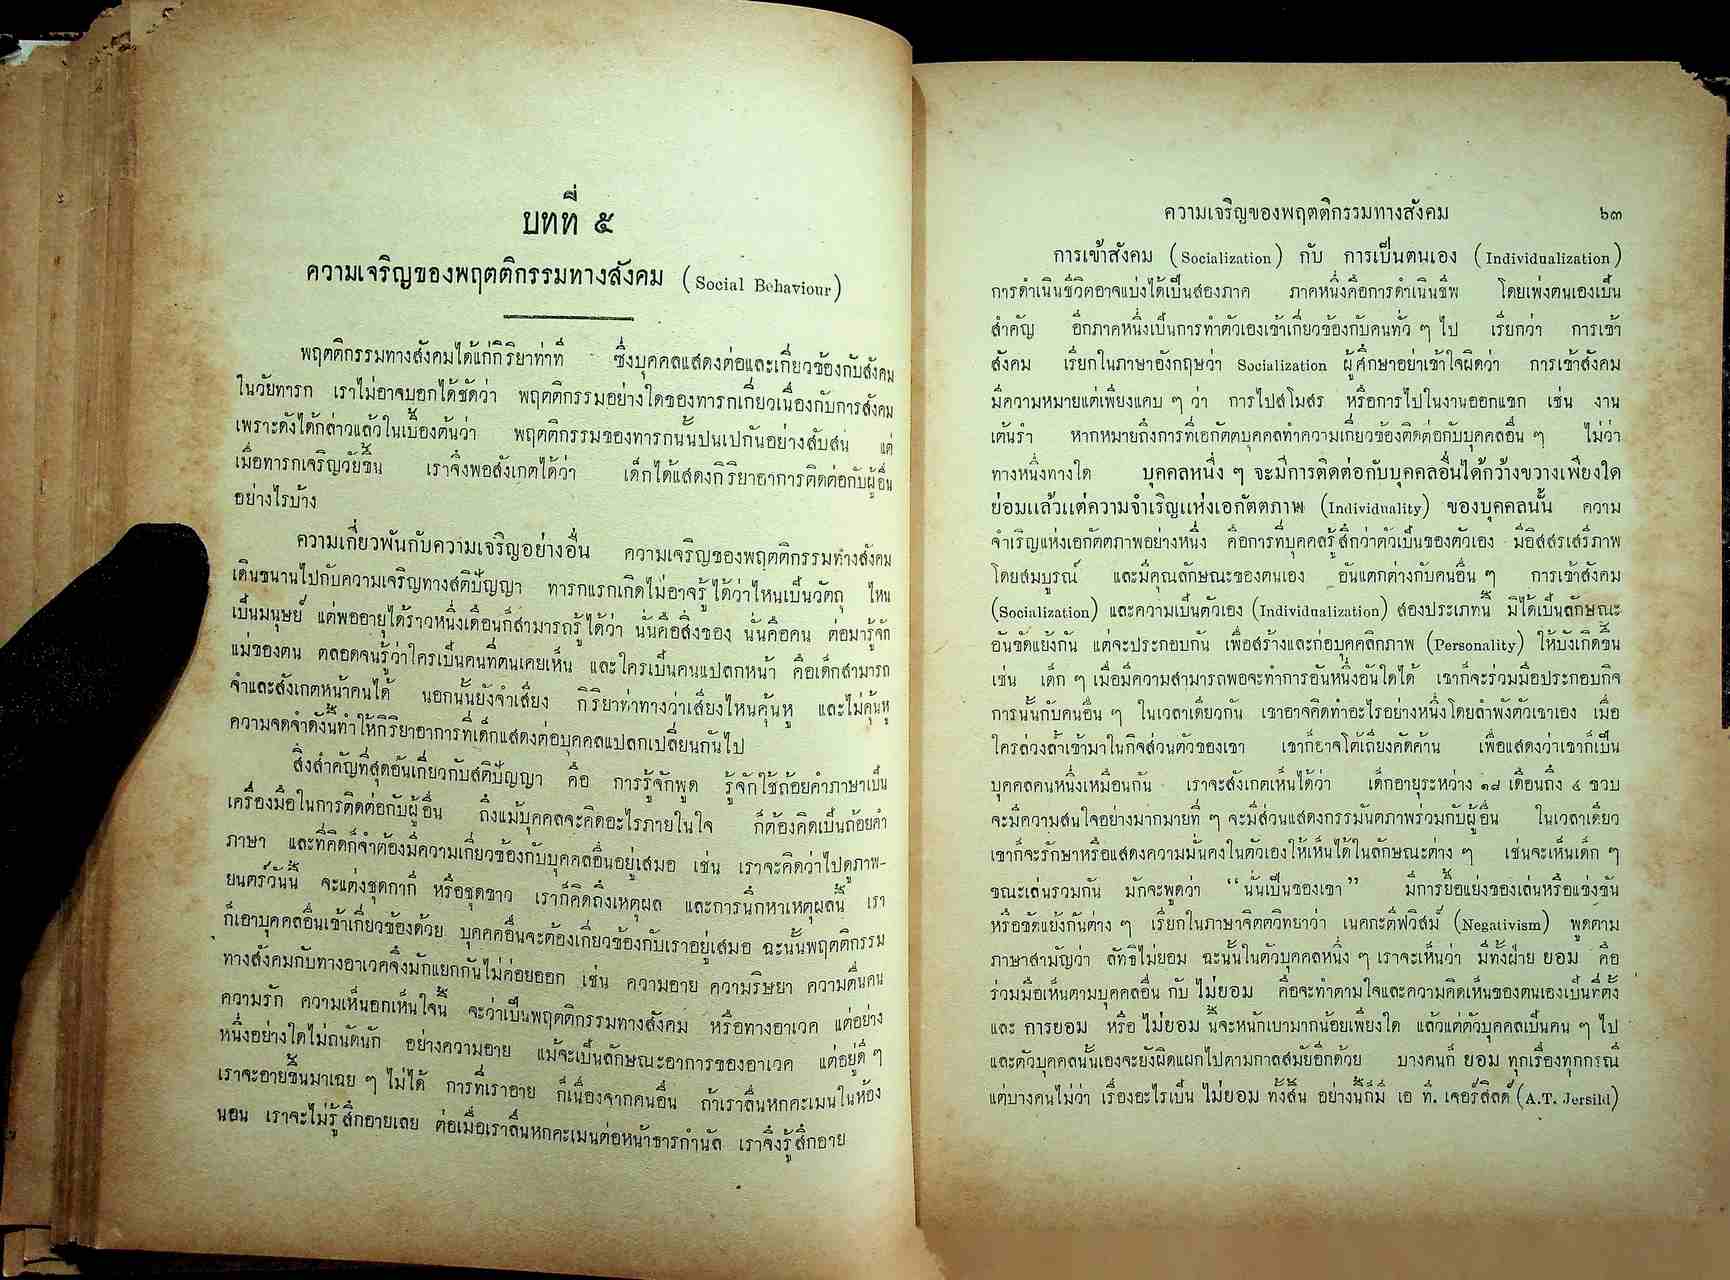 บทที่ ๕
ความเจริญของพฤตติกรรมทางสังคม (Social Behaviour)
พฤตติกรรมทางสังคมได้แก่กิริยาท่าที ซึ่งบุคคลแสดงต่อและเกี่ยวข้องกับสังคม
ในวัยทารก เราไม่อาจบอกได้ชัดว่า พฤตติกรรมอย่างใดของทารกเกี่ยวเนื่องกับการสังคม
เพราะดังได้กล่าวแล้วในเบื้องต้นว่า พฤตติกรรมของทารกนั้นปนเปกันอย่างสับสน แต่
เมื่อทารกเจริญวัยขึ้น เราจึงพอสังเกตได้ว่า เด็กได้แสดงกิริยาอาการติดต่อกับผู้อื่น
อย่างไรบ้าง
ความเกี่ยวพันกับความเจริญอย่างอื่น ความเจริญของพฤตติกรรมทางสังคม
เดินขนานไปกับความเจริญทางสติปัญญา ทารกแรกเกิดไม่อาจรู้ได้ว่าไหนเป็นวัตถุ ไหน
เป็นมนุษย์ แต่พออายุได้ราวหนึ่งเดือนก็สามารถรู้ได้ว่า นั่นคือสิ่งของ นั่นคือคน ต่อมารู้จัก
แม่ของตน ตลอดจนรู้ว่าใครเป็นคนที่ตนเคยเห็น และใครเป็นคนแปลกหน้า คือเด็กสามารถ
จำและสังเกตหน้าคนได้ นอกนั้นยังจำเสียง กิริยาท่าทางว่าเสียงไหนคุ้นหู และไม่คุ้นหู
ความจดจำดังนี้ทำให้กิริยาอาการที่เด็กแสดงต่อบุคคลแปลกเปลี่ยนกันไป
สิ่งสำคัญที่สุดอันเกี่ยวกับสติปัญญา คือ การรู้จักพูด รู้จักใช้ถ้อยคำภาษาเป็น
เครื่องมือในการติดต่อกับผู้อื่น ถึงแม้บุคคลจะคิดอะไรภายในใจ ก็ต้องคิดเป็นถ้อยคำ
ภาษา และที่คิดก็จำต้องมีความเกี่ยวข้องกับบุคคลอื่นอยู่เสมอ เช่น เราจะคิดว่าไปดูภาพ-
ยนตร์วันนี้ จะแต่งชุดกากี หรือชุดขาว เราก็คิดถึงเหตุผล และการนึกหาเหตุผลนี้ เรา
ก็เอาบุคคลอื่นเข้าเกี่ยวข้องด้วย บุคคคอื่นจะต้องเกี่ยวข้องกับเราอยู่เสมอ ฉะนั้นพฤตติกรรม
ทางสังคมกับทางอาเวคจึงมักแยกกันไม่ค่อยออก เช่น ความอาย ความริษยา ความตื่นคน
ความรัก ความเห็นอกเห็นใจนี้ จะว่าเป็นพฤตติกรรมทางสังคม หรือทางอาเวค แต่อย่าง
หนึ่งอย่างใดไม่ถนัดนัก อย่างความอาย แม้จะเป็นลักษณะอาการของอาเวค แต่อยู่ดี ๆ
เราจะอายขึ้นมาเฉย ๆ ไม่ได้ การที่เราอาย ก็เนื่องจากคนอื่น ถ้าเราลื่นหกคะเมนในห้อง
นอน เราจะไม่รู้สึกอายเลย ต่อเมื่อเราลื่นหกคะเมนต่อหน้าธารกำนัล เราจึงรู้สึกอาย
ความเจริญของพฤตติกรรมทางสังคม ๖๓
การเข้าสังคม (Socialization) กับ การเป็นตนเอง (Individualization)
การดำเนินชีวิตอาจแบ่งได้เป็นสองภาค ภาคหนึ่งคือการดำเนินชีพ โดยเพ่งตนเองเป็น
สำคัญ อีกภาคหนึ่งเป็นการทำตัวเองเข้าเกี่ยวข้องกับคนทั่ว ๆ ไป เรียกว่า การเข้า
สังคม เรียกในภาษาอังกฤษว่า Socialization ผู้ศึกษาอย่าเข้าใจผิดว่า การเข้าสังคม
มีความหมายแต่เพียงแคบ ๆ ว่า การไปสโมสร หรือการไปในงานออกแขก เช่น งาน
เต้นรำ หากหมายถึงการที่เอกัตตบุคคลทำความเกี่ยวข้องติดต่อกับบุคคลอื่น ๆ ไม่ว่า
ทางหนึ่งทางใด บุคคลหนึ่ง ๆ จะมีการติดต่อกับบุคคลอื่นได้กว้างขวางเพียงใด
ย่อมแล้วแต่ความจำเริญแห่งเอกัตตภาพ (Individuality) ของบุคคลนั้น ความ
จำเริญแห่งเอกัตตภาพอย่างหนึ่ง คือการที่บุคคลรู้สึกว่าตัวเป็นของตัวเอง มีอิสสรเสรีภาพ
โดยสมบูรณ์ และมีคุณลักษณะของตนเอง อันแตกต่างกับคนอื่น ๆ การเข้าสังคม
(Socialization) และความเป็นตัวเอง (Individualization) สองประเภทนี้ มิได้เป็นลักษณะ
อันขัดแย้งกัน แต่จะประกอบกัน เพื่อสร้างและก่อบุคคลิกภาพ (Personality) ให้บังเกิดขึ้น
เช่น เด็ก ๆ เมื่อมีความสามารถพอจะทำการอันหนึ่งอันใดได้ เขาก็จะร่วมมือประกอบกิจ
การนั้นกับคนอื่น ๆ ในเวลาเดียวกัน เขาอาจคิดทำอะไรอย่างหนึ่งโดยลำพังตัวเขาเอง เมื่อ
ใครล่วงล้ำเข้ามาในกิจส่วนตัวของเขา เขาก็อาจโต้เถียงคัดค้าน เพื่อแสดงว่าเขาก็เป็น
บุคคลคนหนึ่งเหมือนกัน เราจะสังเกตเห็นได้ว่า เด็กอายุระหว่าง ๑๘ เดือนถึง ๔ ขวบ
จะมีความสนใจอย่างมากมายที่ ๆ จะมีส่วนแสดงกรรมันตภาพร่วมกับผู้อื่น ในเวลาเดียว
เขาก็จะรักษาหรือแสดงความมั่นคงในตัวเองให้เห็นได้ในลักษณะต่าง ๆ เช่นจะเห็นเด็ก ๆ
ขณะเล่นรวมกัน มักจะพูดว่า “นั่นเป็นของเขา” มีการยื้อแย่งของเล่นหรือแข่งขัน
หรือขัดแย้งกันต่าง ๆ เรียกในภาษาจิตตวิทยาว่า เนคกะตีฟวิสม์ (Negativism) พูดตาม
ภาษาสามัญว่า ลัทธิไม่ยอม ฉะนั้นในตัวบุคคลหนึ่ง ๆ เราจะเห็นว่า มีทั้งฝ่าย ยอม คือ
ร่วมมือเห็นตามบุคคลอื่น กับ ไม่ยอม คือจะทำตามใจและความคิดเห็นของตนเองเป็นที่ตั้ง
และ การยอม หรือ ไม่ยอม นี้จะหนักเบามากน้อยเพียงใด แล้วแต่ตัวบุคคลเป็นคน ๆ ไป
และตัวบุคคลนั้นเองจะยังผิดแผกไปตามกาลสมัยอีกด้วย บางคนก็ ยอม ทุกเรื่องทุกกรณี
แต่บางคนไม่ว่า เรื่องอะไรเป็น ไม่ยอม ทั้งสิ้น อย่างนี้ก็มี เอ ที. เจอร์สิลด์ (A.T. Jersild)